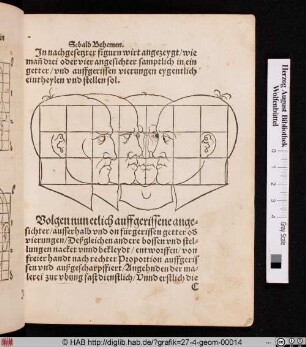 Sebald Behemen.
In nachgesetzter figurn wirt angezeygt/wie
man drei oder vier angesichter samptlich in ein
getter/vnd auffgerissen vierungen eygentlich
eintheylen vnd stellen sol.
Volgen nun etlich auffgerissene ange-
sichter/ausserhalb vnd on fürgerissen getter od
vierungen/Deßgleichen andere bossen vnd stel-
lungen nacket vnnd bekleydt/entworffen/von
freier handt nach rechter Proportion auffgeris
sen vnd außgescharpffiert/Angehnden der ma-
lerei zur vbung fast dienstlich/Vnnd erstlich die
C
Herzog August Bibliothek
Wolfenbüttel
Gray Scale
© HAB http://diglib.hab.de/?grafik=27-4-geom-00014